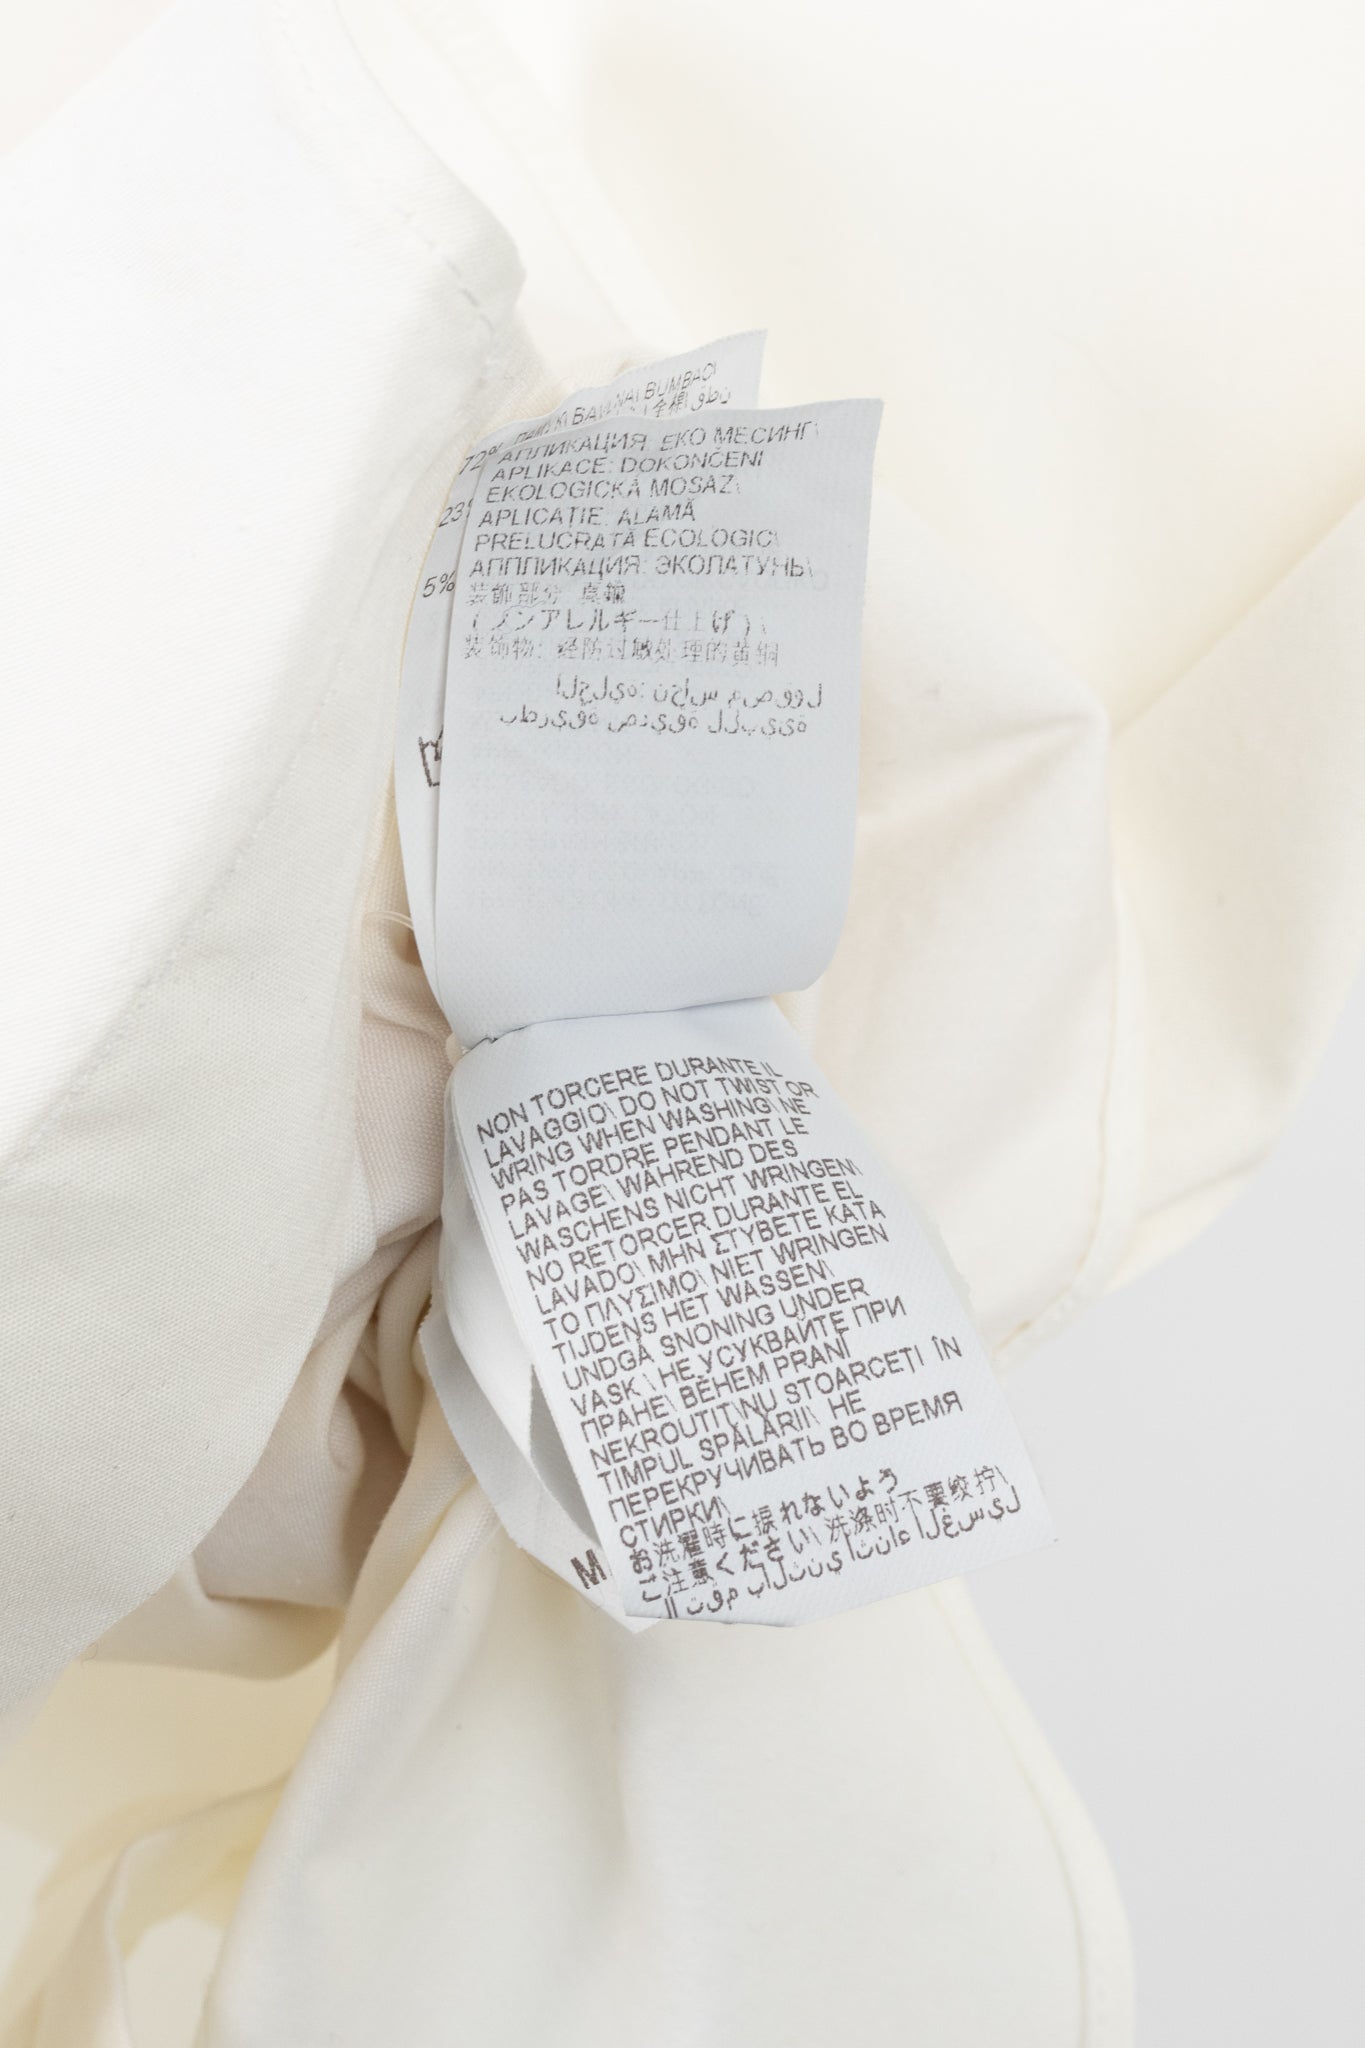 BUMBAC\
72%
全棉\ قطن
23%
5%
АППЛИКАЦИЯ: ЕКО МЕСИНГ\
APLIKACE: DOKONČENI
EKOLOGICKÁ MOSAZ\
APLICAȚIE: ALAMĂ
PRELUCRATĂ ECOLOGIC\
АППЛИКАЦИЯ: ЭКОЛАТУНЬ\
装飾部分: 真鍮
(ノンアレルギー仕上げ)\
装饰物: 经防过敏处理的黄铜
الحلية: نحاس مصقول
بطريقة صديقة للبيئة
NON TORCERE DURANTE IL
LAVAGGIO\ DO NOT TWIST OR
WRING WHEN WASHING\ NE
PAS TORDRE PENDANT LE
LAVAGE\ WÄHREND DES
WASCHENS NICHT WRINGEN\
NO RETORCER DURANTE EL
LAVADO\ ΜΗΝ ΣΤΥΒΕΤΕ ΚΑΤΑ
ΤΟ ΠΛΥΣΙΜΟ\ NIET WRINGEN
TIJDENS HET WASSEN\
UNDGÅ SNONING UNDER
VASK \ НЕ УСУКВАЙТЕ ПРИ
ПРАНЕ\ BĚHEM PRANÍ
NEKROUTIT\ NU STOARCEȚI ÎN
TIMPUL SPĂLĂRII\ НЕ
ПЕРЕКРУЧИВАТЬ ВО ВРЕМЯ
СТИРКИ\
お洗濯時に捩れないよう
ご注意ください\ 洗涤时不要绞拧\
لا تقوم بالثني أثناء الغسيل
M